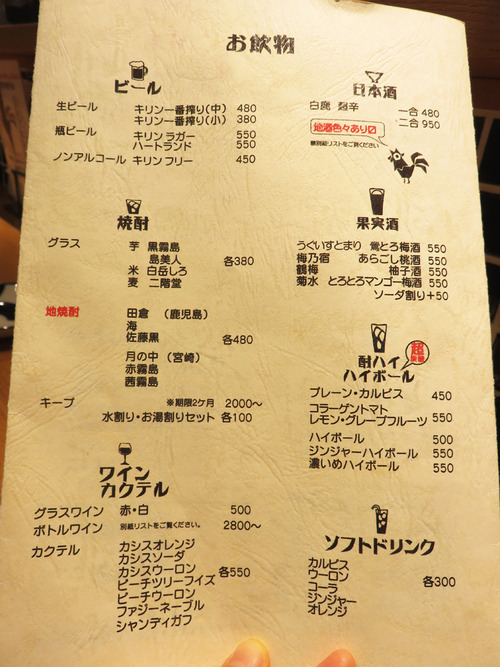 お飲物
ビール
生ビール キリン一番搾り(中) 480
キリン一番搾り(小) 380
瓶ビール キリンラガー 550
ハートランド 550
ノンアルコール キリンフリー 450
焼酎
グラス 芋 黒霧島
島美人 各380
米 白岳しろ
麦 二階堂
地焼酎 田倉 (鹿児島)
海
佐藤黒 各480
月の中(宮崎)
赤霧島
茜霧島
キープ ※期限2ケ月 2000〜
水割り・お湯割りセット 各100
ワイン
カクテル
グラスワイン 赤・白 500
ボトルワイン 別紙リストをご覧ください。 2800〜
カクテル カシスオレンジ
カシスソーダ
カシスウーロン 各550
ピーチツリーフイズ
ピーチウーロン
ファジーネーブル
シャンディガフ
日本酒
白鹿 辛 一合 480
二合 950
地酒色々あり〼
別紙リストをご覧ください
果実酒
うぐいすとまり 鶯とろ梅酒 550
梅乃宿 あらごし桃酒 550
鶴梅 柚子酒 550
菊水 とろとろマンゴー梅酒 550
ソーダ割り+50
酎ハイ
ハイボール
超
プレーン・カルピス 450
コラーゲントマト
レモン・グレープフルーツ 550
ハイボール 500
ジンジャーハイボール 550
濃いめハイボール 550
ソフトドリンク
カルピス
ウーロン
コーラ 各300
ジンジャー
オレンジ